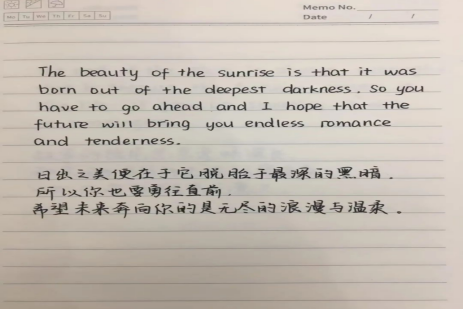 Memo No.
Mo Tu We Th Fr Sa Su
Date / /
The beauty of the sunrise is that it was
born out of the deepest darkness. So you
have to go ahead and I hope that the
future will bring you endless romance
and tenderness.
日出之美便在于它脱胎于最深的黑暗.
所以你也要勇往直前.
希望未来奔向你的是无尽的浪漫与温柔。